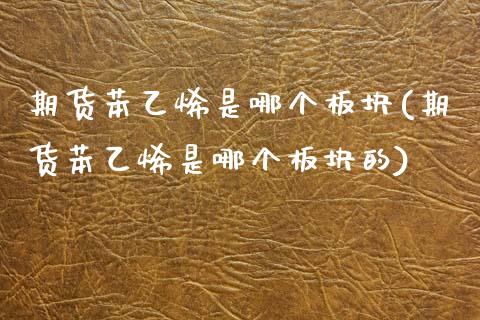 期货苯乙烯是哪个板块(期
货苯乙烯是哪个板块的)